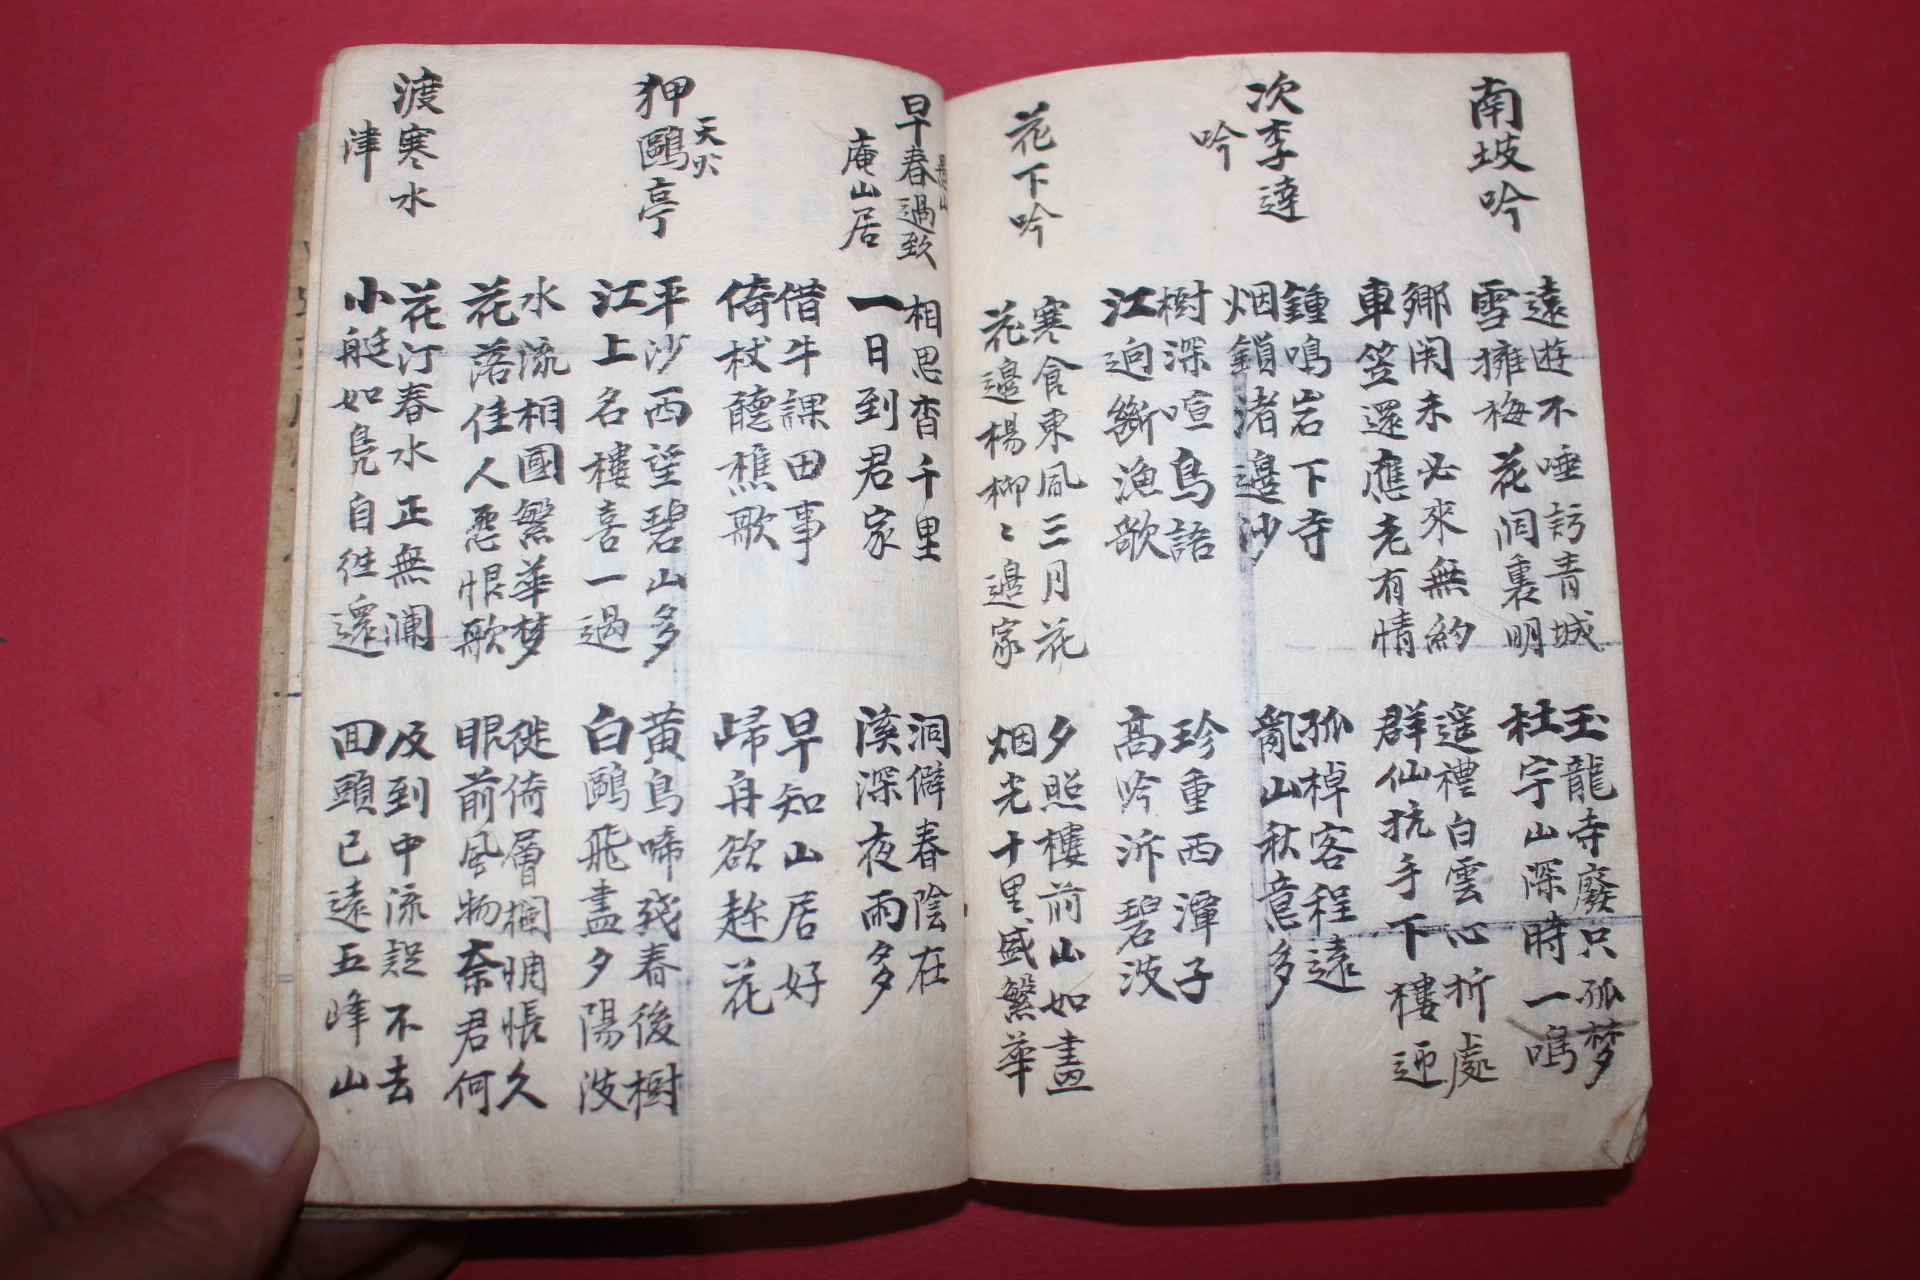 南坡吟
遠遊不唾訪青城
雪擁梅花洞裏明
玉龍寺廢只孤梦
杜宇山深時一鳴
鄉関未必來無約
車笠還應老有情
遥禮白雲心折處
群仙抗手下樓迎
次李達
吟
鍾鳴岩下寺
烟鎖渚邊沙
孤棹客程遠
亂山秋意多
樹深喧鳥語
江逈斷漁歌
珍重西潭子
高吟泝碧波
花下吟
寒食東風三月花
花邊楊柳〻邊家
夕照樓前山如畫
烟光十里盛繁華
早春過致
庵山居
相思杳千里
一日到君家
洞僻春陰在
溪深夜雨多
借牛課田事
倚杖聽樵歌
早知山居好
歸舟欲趂花
狎鷗亭
天火
平沙西望碧山多
江上名樓喜一過
黄鳥啼殘春後樹
白鷗飛盡夕陽波
水流相國繁華梦
花落佳人怨恨歌
徙倚層欄惆悵久
眼前風物奈君何
渡寒水
津
花汀春水正無瀾
小艇如鳧自徃還
及到中流疑不去
回頭已遠五峰山